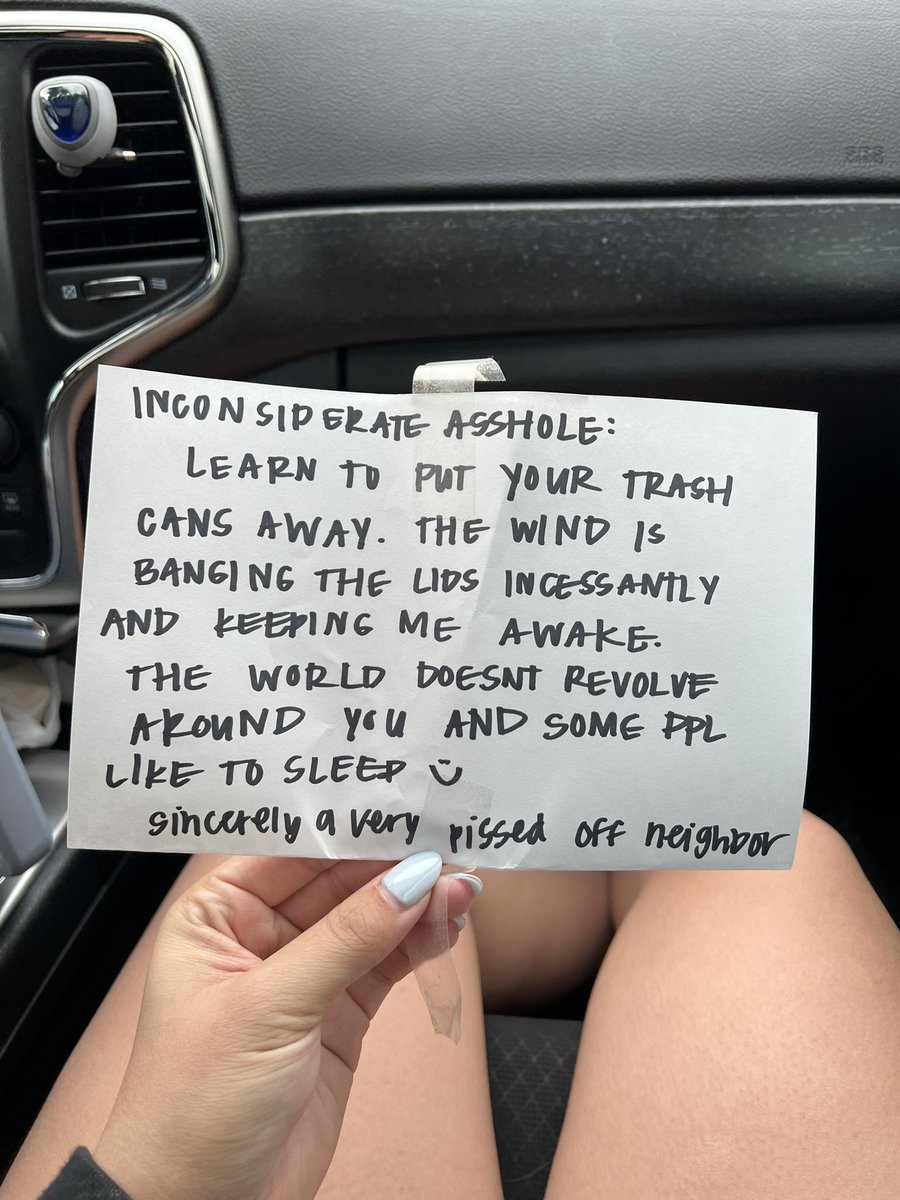 INCONSIDERATE ASSHOLE:
LEARN TO PUT YOUR TRASH
CANS AWAY. THE WIND IS
BANGING THE LIDS INCESSANTLY
AND KEEPING ME AWAKE.
THE WORLD DOESNT REVOLVE
AROUND YOU AND SOME PPL
LIKE TO SLEEP
sincerely a very pissed off neighbor
SRS